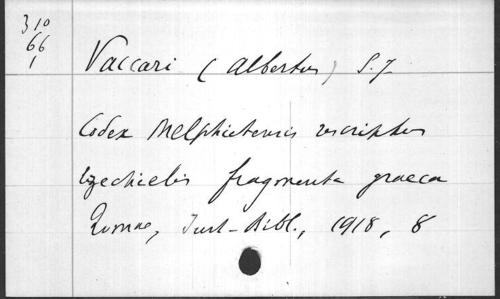 310
66
1
Vaccari (Albertus) S.J.
Codex Melphictensis rescriptus
Ezechielis fragmenta graeca
Romae, Inst. Bibl., 1918, 8